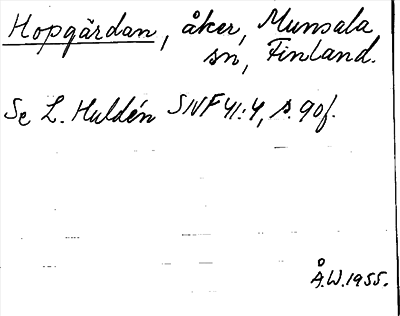 Hopgärdan, åker, Munsala
sn, Finland.
Se L. Huldén SNF 41:4, s. 90f.
Å.W. 1955.